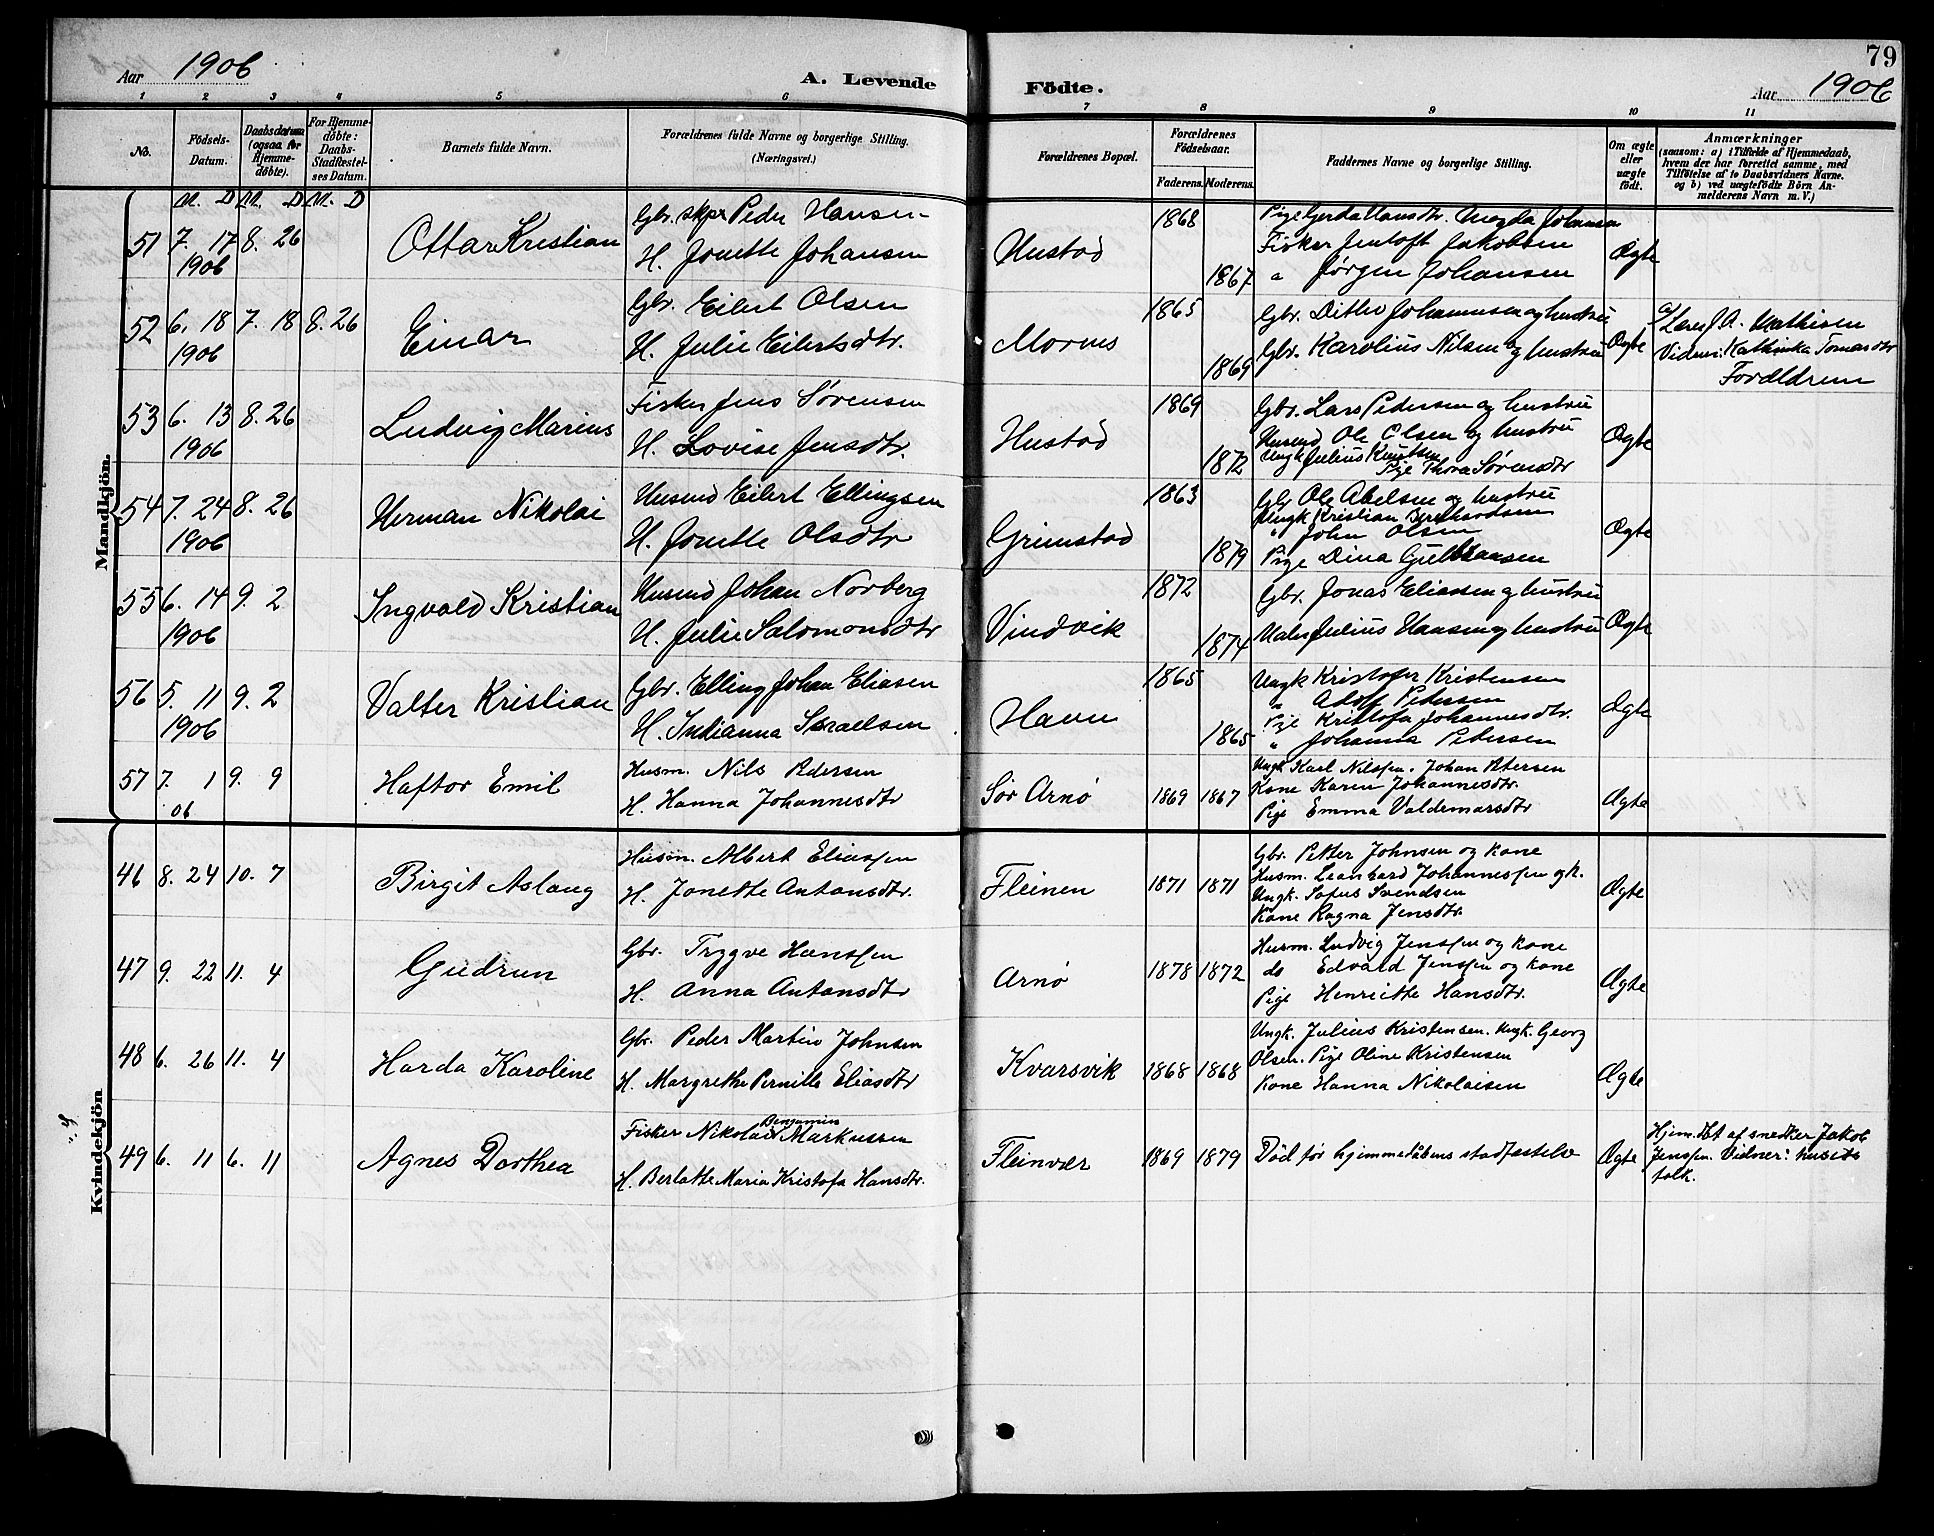 79
Aar 1906
A. Levende
Födte.
Aar 1906
1 2 3 4 5 6 7 8 9 10 11
No.
Födsels-Datum.
Daabsdatum (ogsaa for Hjemmedøbte).
For Hjemmedøbte: Daabs-Stadfæstelses Datum.
Barnets fulde Navn.
Forældrenes fulde Navne og borgerlige Stilling.
(Næringsvei.)
Forældrenes Bopæl.
Forældrenes Födselsaar.
Faderens. Moderens.
Faddernes Navne og borgerlige Stilling.
Om ægte eller uægte födt.
Anmærkninger
(saasom: a) i Tilfælde af Hjemmedaab, hvem der har forrettet samme, med Tilføielse af to Daabsvidners Navne. og b) ved uægtefödte Börn Anmelderens Navn m. V.)
M. D M. D M. D
Mandkjön.
51 7. 17 1906 8. 26 Ottar Kristian
Gbr. skpr Peder Hansen
H. Jonette Johansen
Hustad 1868 1867
Pige Gerda Hansdtr. Magda Johansen
Fisker Jentoft Jakobsen
" Jørgen Johansen
Ægte
52 6. 18 1906 7. 18 8. 26 Einar
Gbr. Eilert Olsen
H. Julie Eilertsdtr.
Mornes 1865 1869
Gbr. Ditlev Johannesen og hustru
Gbr. Karolius Nilsen og hustru
Ægte
a/ Lærer J. A. Mathisen
Vidner: Kathinka Tomasdtr
Forældrene
53 6. 13 1906 8. 26 Ludvig Marius
Fisker Jens Sørensen
H. Lovise Jensdtr.
Hustad 1869 1872
Gbr. Lars Pedersen og hustru
Husmd Ole Olsen og hustru
Ungk Julius Knutsen
Pige Thora Sørensdtr
Ægte
54 7. 24 1906 8. 26 Herman Nikolai
Husmd Eilert Ellingsen
H. Jonette Olsdtr
Grimstad 1863 1879
Gbr Ole Abelsen og hustru
Ungk Kristian Bernhardsen
" John Olsen
Pige Dina
Ægte
55 6. 14 1906 9. 2 Ingvald Kristian
Husmd Johan Norberg
H. Julie Salomonsdtr
Vindvik 1872 1874
Gbr. Jonas Eliassen og hustru
Maler Julius Hansen og hustru
Ægte
56 5. 11 1906 9. 2 Valter Kristian
Gbr. Elling Johan Eliasen
H. Indianna Israelsen
Havn 1865 1865
Ungk Kristofer Kristensen
" Adolf Pedersen
Pige Kristofa Johannesdtr.
" Johanna Petersen
Ægte
57 7. 1 06 9. 9 Haftor Emil
Husm. Nils Pedersen
H. Hanna Johannesdtr
Sør Arnø 1869 1867
Ungk Karl Nilssen. Johan Petersen
Kone Karen Johannesdtr.
Pige Emma Valdemarsdtr
Ægte
Kvindekjön
46 8. 24 10. 7 Birgit Aslaug
Husm. Albert Eliassen
H. Jonette Antonsdtr.
Fleinen 1871 1871
Gbr. Petter Johnsen og kone
Husm. Leonhard Johannessen og k.
Ungk. Sofus Svendsen
Kone Ragna Jensdtr.
Ægte
47 9. 22 11. 4 Gudrun
Gbr. Trygve Hanssen
H. Anna Antonsdtr
Arnø 1878 1872
Husm. Ludvig Jenssen og kone
do Edvald Jenssen og kone
Pige Henriette Hansdtr.
Ægte
48 6. 26 11. 4 Harda Karoline
Gbr. Peder Martin Johnsen
H. Margrethe Pernille Eliasdtr
Kvarsvik 1868 1868
Ungk. Julius Kristensen. Ungk. Georg
Olsen. Pige Oline Kristensen
Kone Hanna Nikolaisen
Ægte
49 6. 11 6. 11 Agnes Dorthea
Fisker Nikolai Benjamin Markussen
H. Berlotte Maria Kristofa Hansdtr.
Fleinvær 1869 1879
Død før hjemmedåbens stadfæstelse
Ægte
Hjem. dbt af snedker Jakob
Jenssen. Vidner: husets
folk.